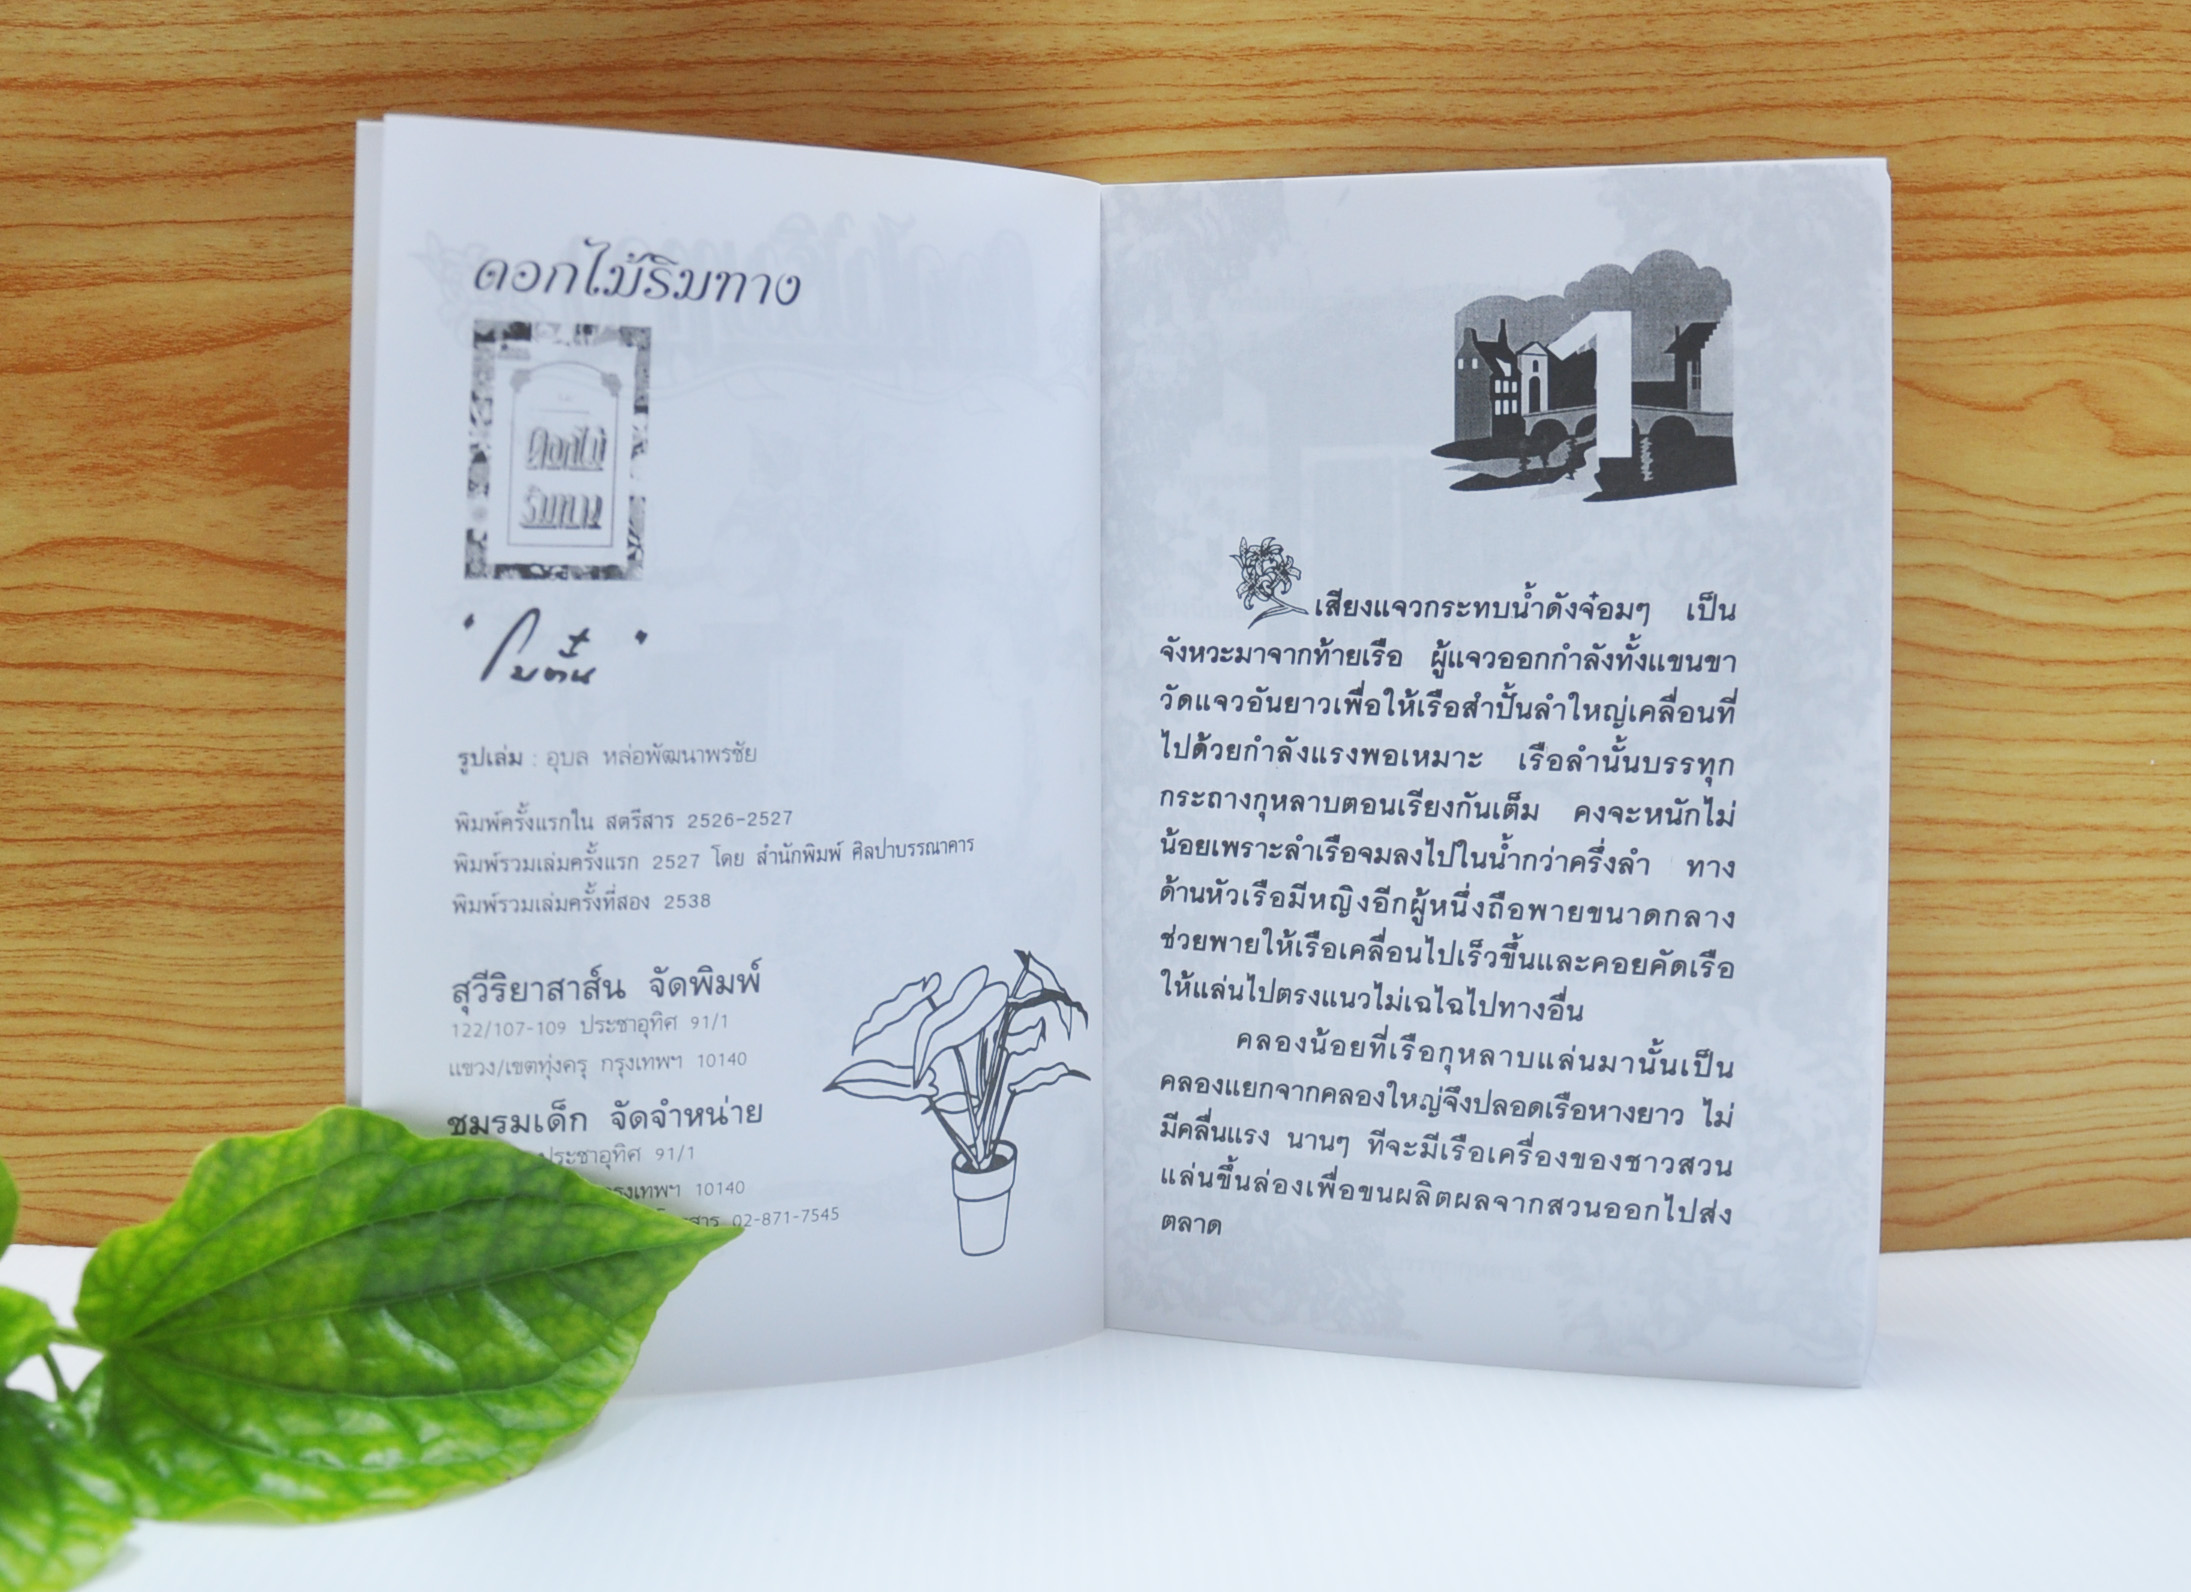 ดอกไม้ริมทาง
ดอกไม้
ริมทาง
"โบตั๋น"
รูปเล่ม : อุบล หล่อพัฒนาพรชัย
พิมพ์ครั้งแรกใน สตรีสาร 2526-2527
พิมพ์รวมเล่มครั้งแรก 2527 โดย สำนักพิมพ์ ศิลปาบรรณาคาร
พิมพ์รวมเล่มครั้งที่สอง 2538
สุวีริยาสาส์น จัดพิมพ์
122/107-109 ประชาอุทิศ 91/1
แขวง/เขตทุ่งครุ กรุงเทพฯ 10140
ชมรมเด็ก จัดจำหน่าย
ประชาอุทิศ 91/1
กรุงเทพฯ 10140
โทรสาร 02-871-7545
1
เสียงแจวกระทบน้ำดังจ๋อมๆ เป็น
จังหวะมาจากท้ายเรือ ผู้แจวออกกำลังทั้งแขนขา
วัดแจวอันยาวเพื่อให้เรือสำปั้นลำใหญ่เคลื่อนที่
ไปด้วยกำลังแรงพอเหมาะ เรือลำนั้นบรรทุก
กระถางกุหลาบตอนเรียงกันเต็ม คงจะหนักไม่
น้อยเพราะลำเรือจมลงไปในน้ำกว่าครึ่งลำ ทาง
ด้านหัวเรือมีหญิงอีกผู้หนึ่งถือพายขนาดกลาง
ช่วยพายให้เรือเคลื่อนไปเร็วขึ้นและคอยคัดเรือ
ให้แล่นไปตรงแนวไม่เฉไฉไปทางอื่น
คลองน้อยที่เรือกุหลาบแล่นมานั้นเป็น
คลองแยกจากคลองใหญ่จึงปลอดเรือหางยาว ไม่
มีคลื่นแรง นานๆ ทีจะมีเรือเครื่องของชาวสวน
แล่นขึ้นล่องเพื่อขนผลิตผลจากสวนออกไปส่ง
ตลาด